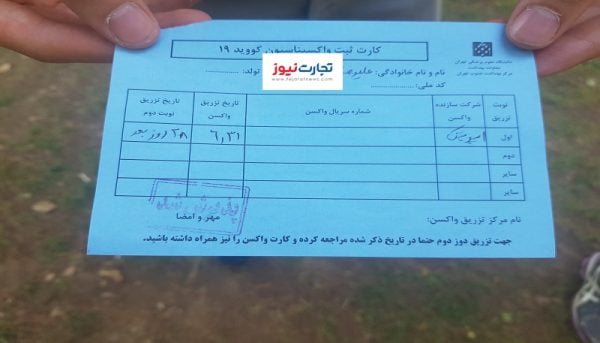 کارت ثبت واکسیناسیون کووید ۱۹
دانشگاه علوم پزشکی تهران
معاونت بهداشت
مرکز بهداشت جنوب تهران
نام و نام خانوادگی:
تولد: ............
کد ملی: ....................
تجارت‌نیوز
www.tejaratnews.com
نوبت تزریق
شرکت سازنده واکسن
شماره سریال واکسن
تاریخ تزریق واکسن
تاریخ تزریق نوبت دوم
اول
۶,۳۱
۲۸ روز بعد
دوم
سایر
سایر
نام مرکز تزریق واکسن:
مهر و امضا
جهت تزریق دوز دوم حتما در تاریخ ذکر شده مراجعه کرده و کارت واکسن را نیز همراه داشته باشید.